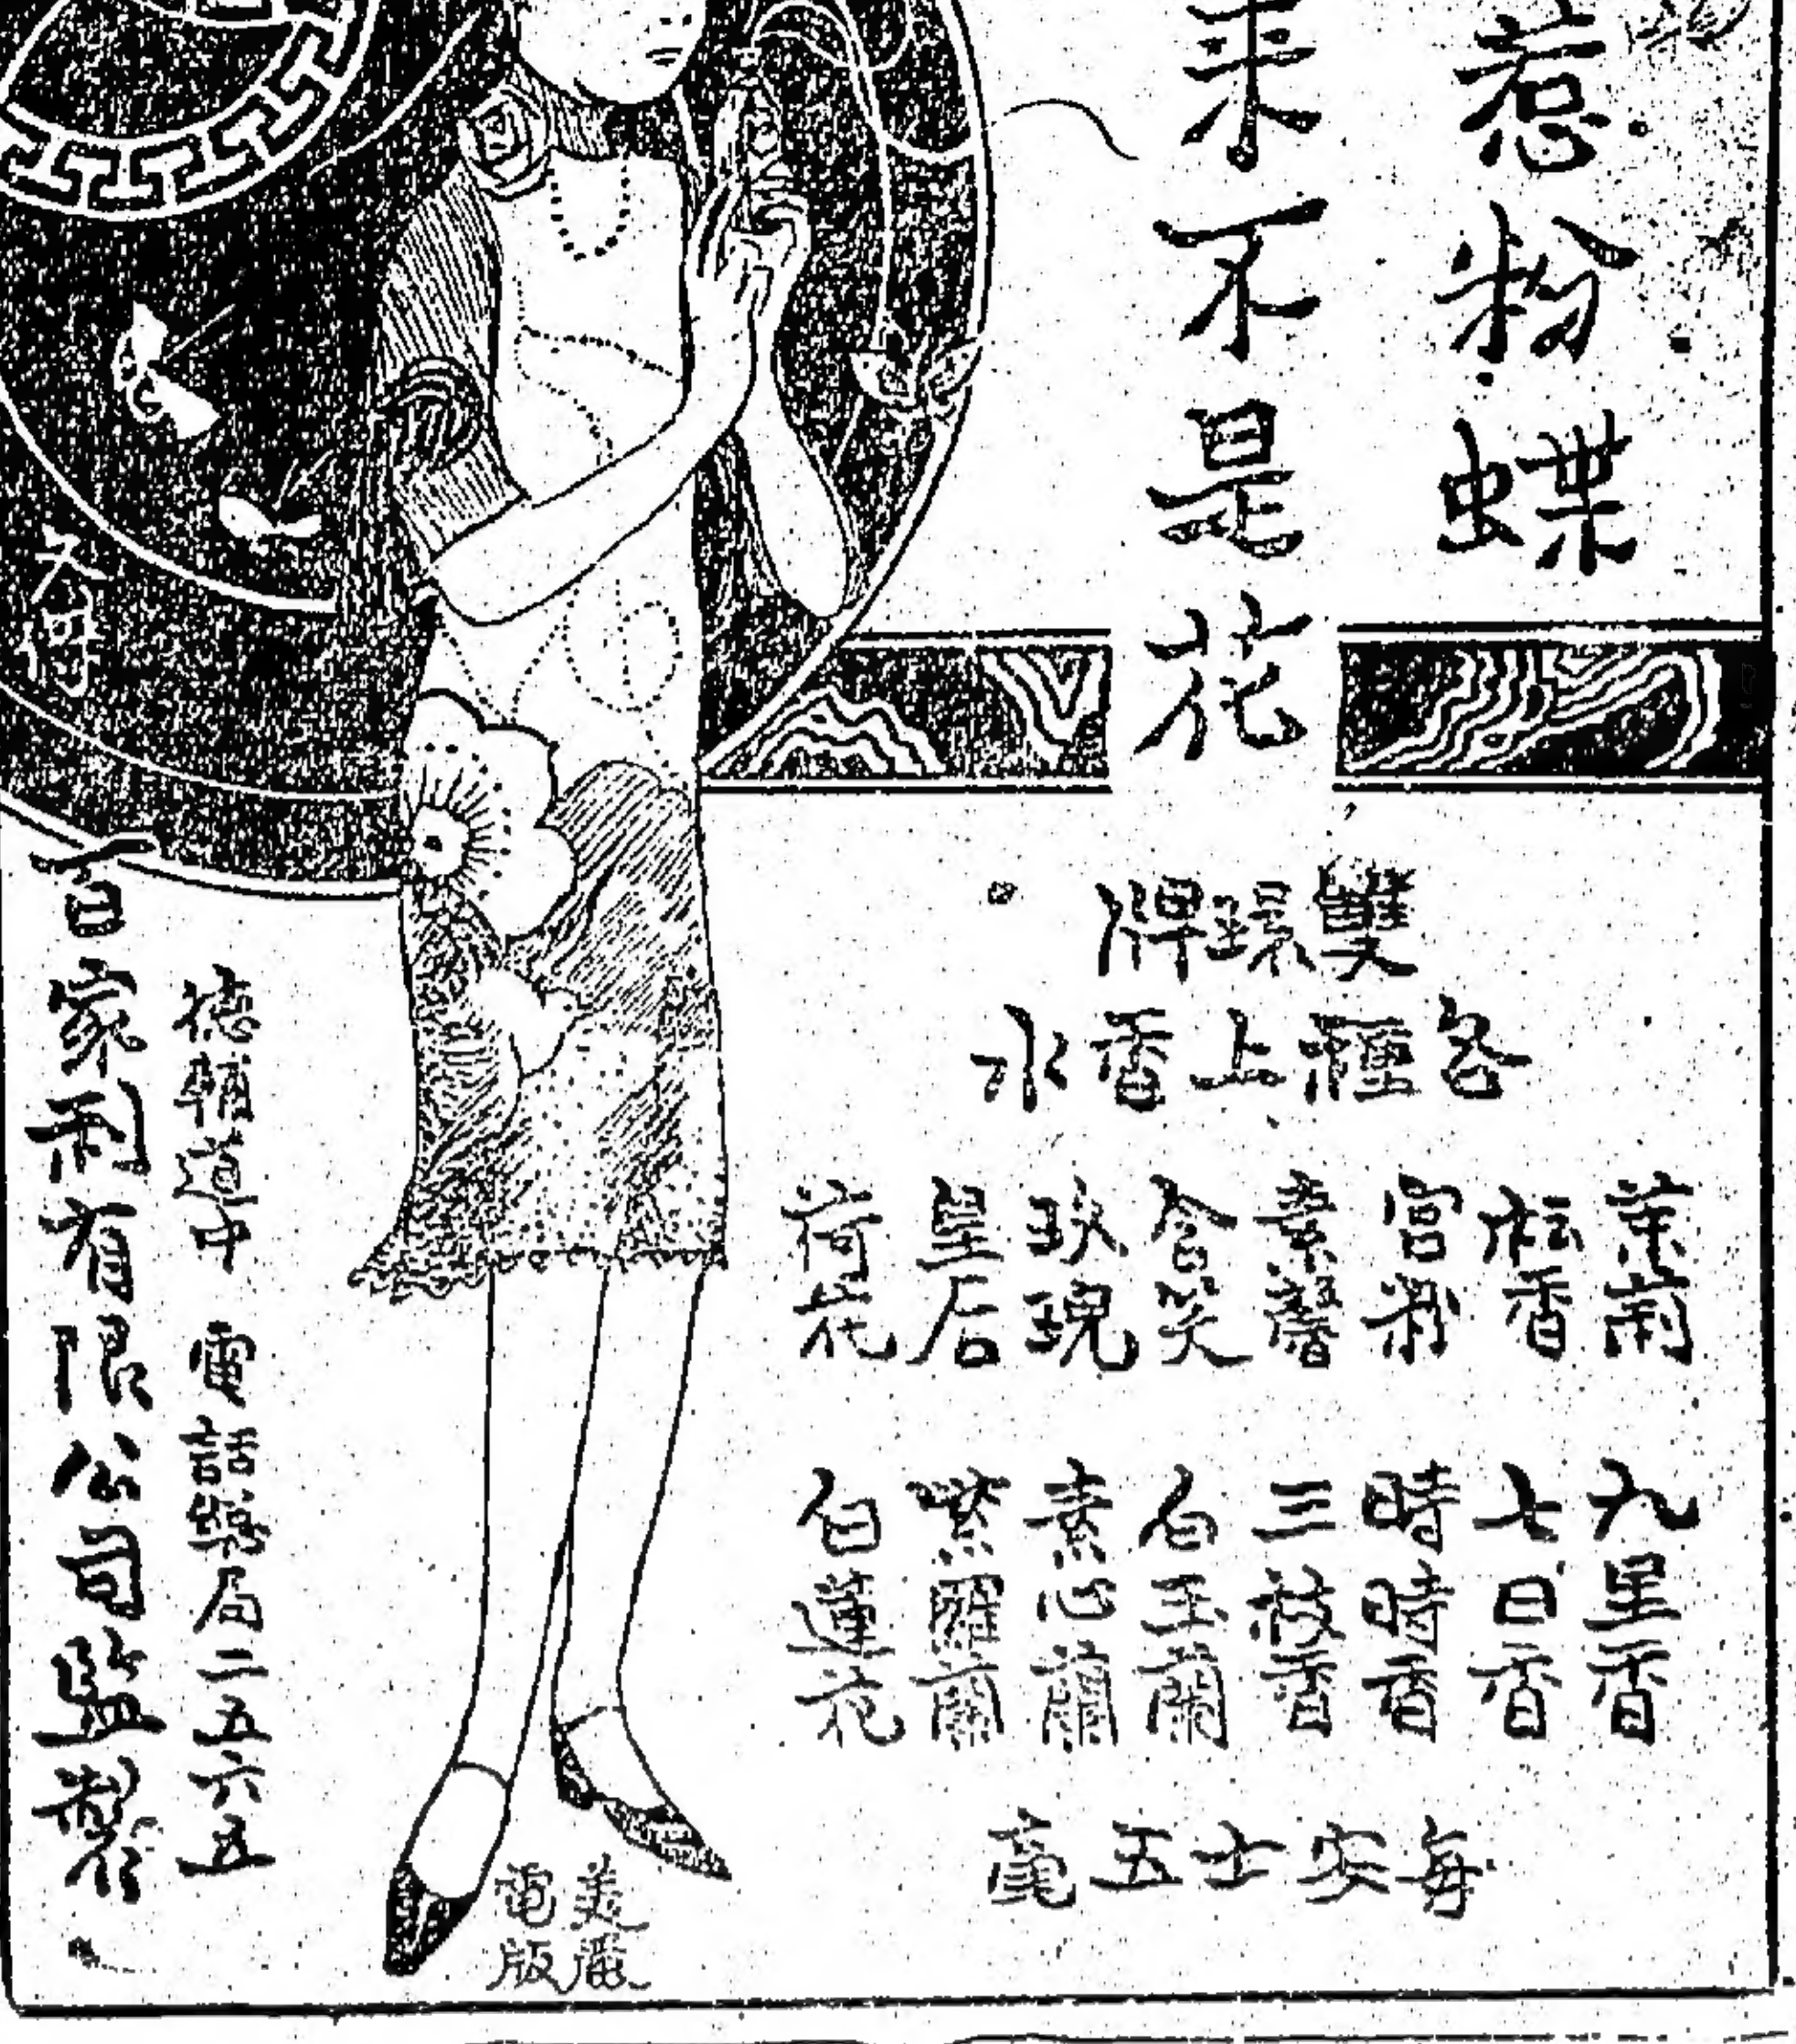 惹粉蝶
來不是花
雙環牌
各種上香水
茉蘭
檀香
宮粉
素馨
含笑
玫瑰
皇后
荷花
九里香
七日香
時時香
三枝香
白玉蘭
素心蘭
紫羅蘭
白蓮花
每安士五毫
德輔道中 電話總局二五六五
百家利有限公司監製
美灑
電版